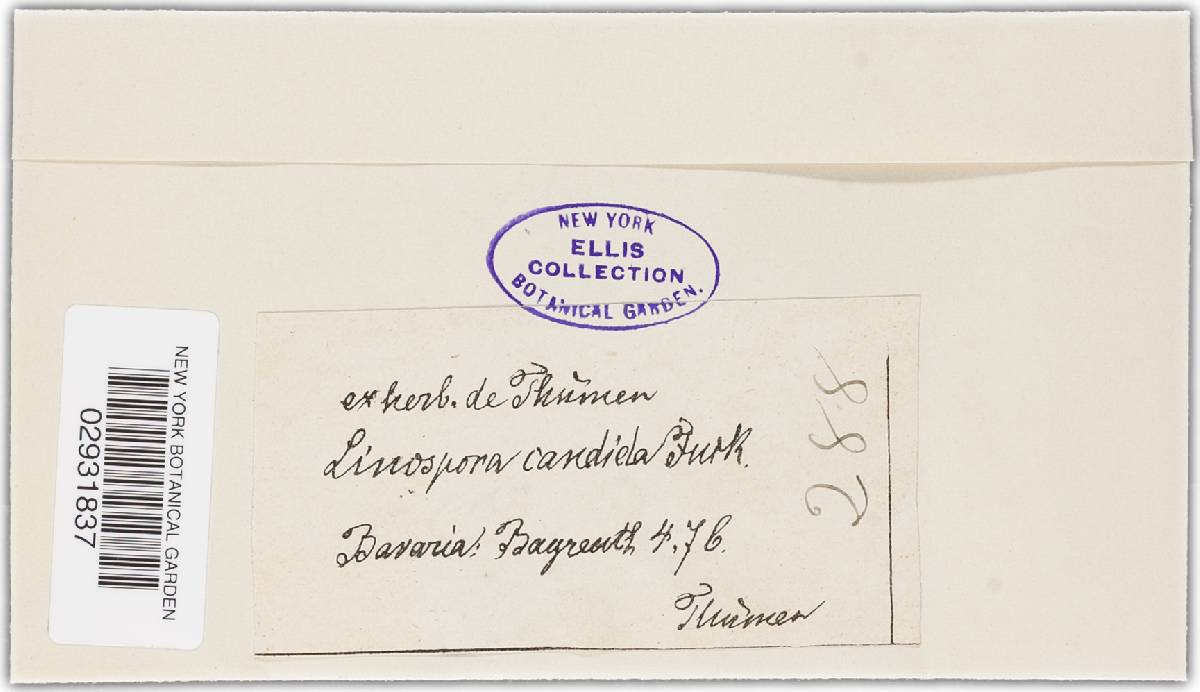 NEW YORK
ELLIS
COLLECTION
BOTANICAL GARDEN.
ex herb. de Thümen
Linospora candida Fuck.
Bavaria: Bayreuth 4.76.
Thümen
288
NEW YORK BOTANICAL GARDEN
02931837